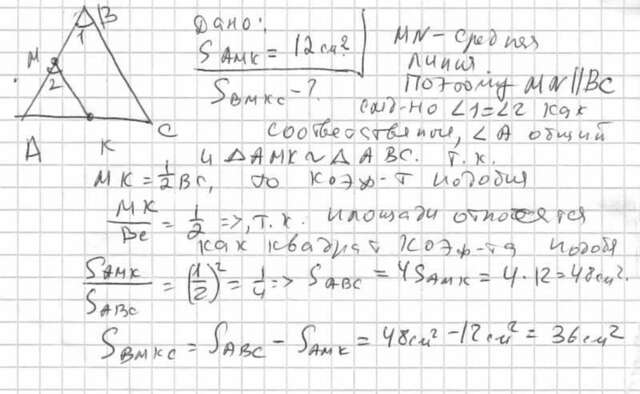 B
1
M
2
A K C
Дано:
S AMK = 12 см²
S BMKC - ?
MN - средняя
линия
Поэтому MN || BC
след-но ∠1=∠2 как
соответственные, ∠A общий
и △AMK ~ △ABC. Т.к.
MK = 1/2 BC, то коэф-т подобия
MK/BC = 1/2 =>, т.к. площади относятся
как квадрат коэф-та подобия
S AMK / S ABC = (1/2)² = 1/4 => S ABC = 4 S AMK = 4 · 12 = 48 см².
S BMKC = S ABC - S AMK = 48 см² - 12 см² = 36 см²